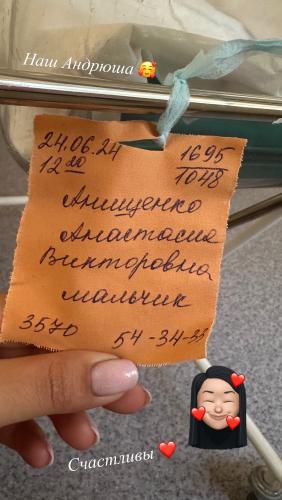 Наш Андрюша 🥰
24.06.24
12 20
1695
1048
Анищенко
Анастасия
Викторовна
мальчик
3570
54-34-33
Счастливы ❤️